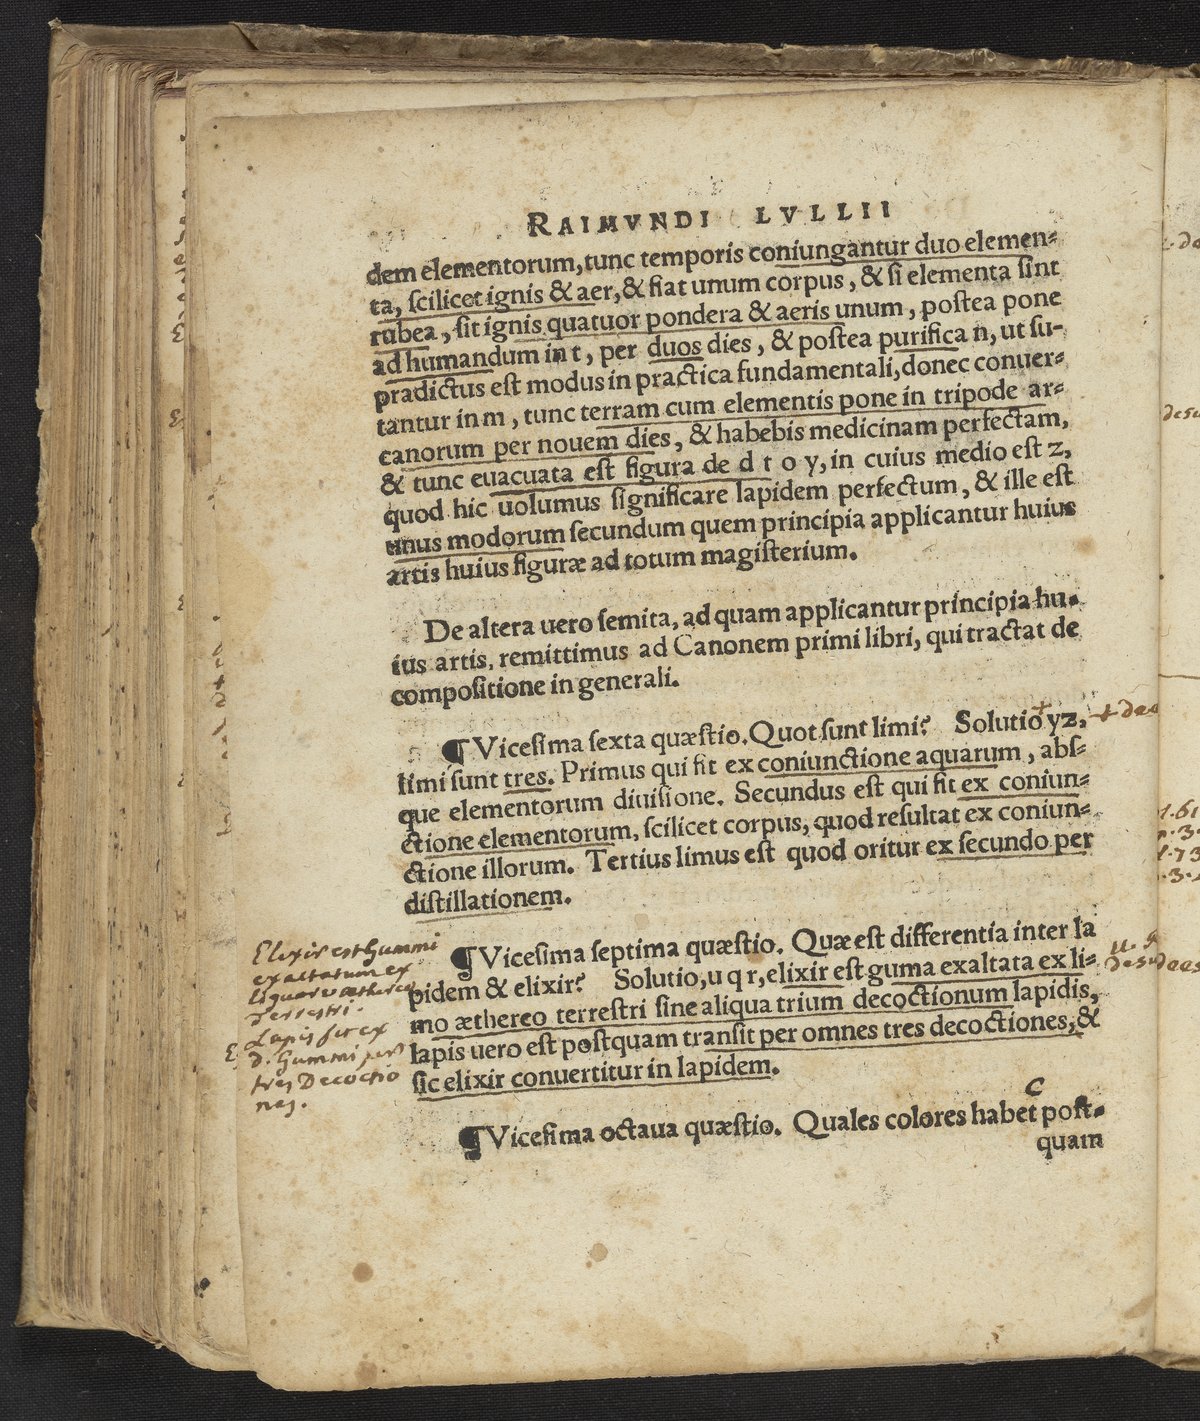 RAIMVNDI LVLLII
dem elementorum, tunc temporis coniungantur duo elemen-
ta, scilicet ignis & aer, & fiat unum corpus, & si elementa sint
rubea, sit ignis quatuor pondera & aeris unum, postea pone
ad humandum in t, per duos dies, & postea purifica n, ut su-
pradictus est modus in practica fundamentali, donec conuer-
tantur in m, tunc terram cum elementis pone in tripode ar-
canorum per nouem dies, & habebis medicinam perfectam,
& tunc euacuata est figura de d t o y, in cuius medio est z,
quod hic uolumus significare lapidem perfectum, & ille est
unus modorum secundum quem principia applicantur huius
artis huius figuræ ad totum magisterium.
De altera uero semita, ad quam applicantur principia hu-
ius artis, remittimus ad Canonem primi libri, qui tractat de
compositione in generali.
¶ Vicesima sexta quæstio. Quot sunt limi? Solutio yz,
limi sunt tres. Primus qui fit ex coniunctione aquarum, abs-
que elementorum diuisione. Secundus est qui fit ex coniun-
ctione elementorum, scilicet corpus, quod resultat ex coniun-
ctione illorum. Tertius limus est quod oritur ex secundo per
distillationem.
¶ Vicesima septima quæstio. Quæ est differentia inter la
pidem & elixir? Solutio, u q r, elixir est guma exaltata ex li-
mo æthereo terrestri sine aliqua trium decoctionum lapidis,
lapis uero est postquam transit per omnes tres decoctiones, &
sic elixir conuertitur in lapidem.
¶ Vicesima octaua quæstio. Quales colores habet post-
quam
C
Elixir est Gummi
exaltatum ex
liquore æthereo
terrestri.
Lapis fit ex
d. Gummi per
tres Decoctio
nes.